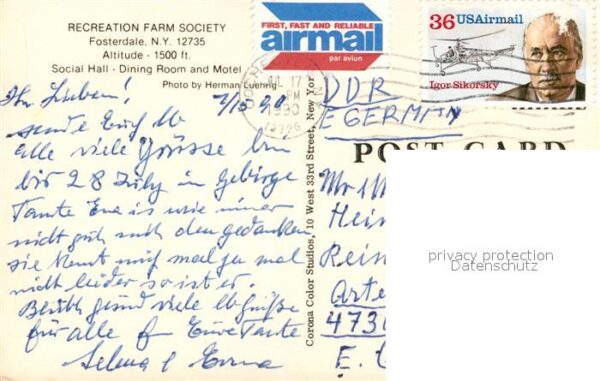 RECREATION FARM SOCIETY
Fosterdale, N.Y. 12735
Altitude - 1500 ft.
Social Hall - Dining Room and Motel
Photo by Herman Luehrig
FIRST, FAST AND RELIABLE
airmail
par avion
36 USAirmail
Igor Sikorsky
JUL 17
PM
1990
12726
Ihr Lieben! 7/15 90
sende Euch
alle viele Grüsse bin
bis 28 July in Gebirge
Tante Eva is wie immer
nicht gut mit den gedanken
sie kennt mich mal ja mal
nicht leider so ist er.
Bleibt gesund viele
für alle Eure Tante
Selma & Erna
Corona Color Studios, 10 West 33rd Street, New York
DDR
E GERMANY
POST CARD
Mr
Hein
Rein
Arte
4730
E.
privacy protection
Datenschutz